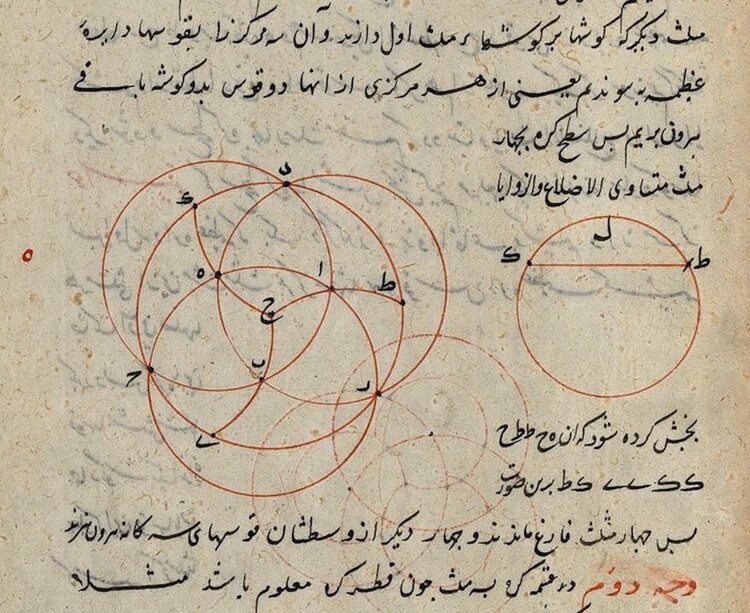 مثلث دیگر که کوشها بر کوشهاء مثلث اول دارند و آن سه مرکز را بقوسها دایره
عظیمه پیوندیم یعنی از هر مرکزی از آنها دو قوس بدو کوشه باقی
برون بریم پس سطح کره بچهار
مثلث متساوی الاضلاع والزوایا
د
ک
ل
ه
ا
ط
ک
ط
ح
ح
ب
ر
ی
بخش کرده شود که آن ح ط
ک ی ک ط برین صورت
پس چهار مثلث فارغ ماند و چهار دیکر از وسطشان قوسهای سه کانه برون
وجه دوم در قسمة کره به مثلث چون قطر کره معلوم باشد مثلا